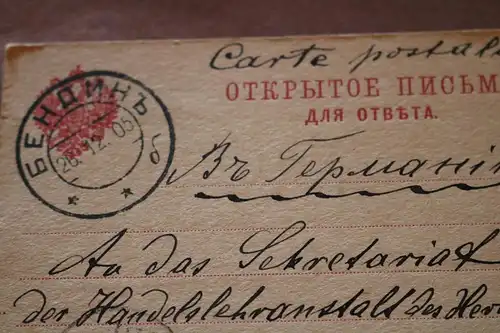 Carte postale
ОТКРЫТОЕ ПИСЬМ
ДЛЯ ОТВѢТА.
БЕНДИНЪ
26.12.03
Въ Германі
An das Sekretariat
der Handelslehranstalt des Her